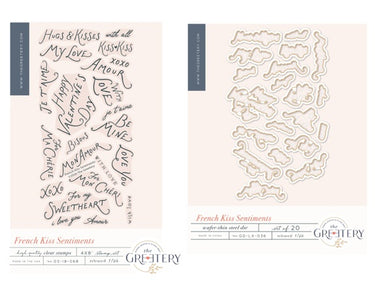 WWW.THEGREETERY.COM
HUGS & KISSES
with all
MY LOVE
KISS KISS
xoxo
AMOUR
JE T'AIME
HAPPY
VALENTINE'S
DAY
LOVE
With
je t'aime
BE
MINE
MA CHÉRIE
Bisous
MON AMOUR
WITH LOVE
LOVE YOU
For
MON CHER
XOXO
For my
SWEETHEART
i love you
Amour
French Kiss Sentiments
high quality clear stamps
4X8" stamp set
MADE IN THE USA
the
GREETERY
WWW.THEGREETERY.COM
French Kiss Sentiments
wafer-thin steel die
set of 20
the
GREETERY